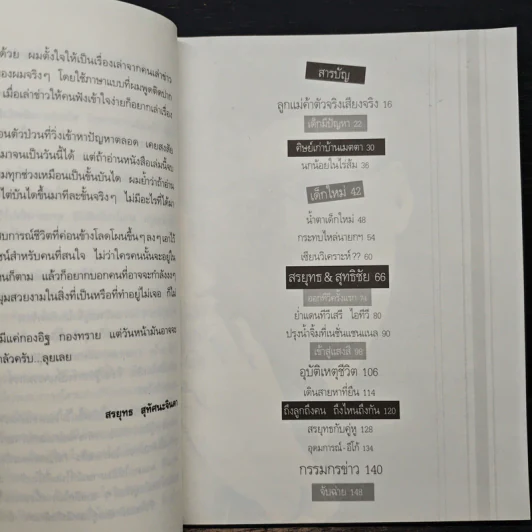 ด้วย ผมตั้งใจให้เป็นเรื่องเล่าจากคนเล่าข่าว
ของผมจริงๆ โดยใช้ภาษาแบบที่ผมพูดติดปาก
เมื่อเล่าข่าวให้คนฟังเข้าใจง่ายก็อยากเล่าเรื่อง
อนตัวป่วนที่วิ่งเข้าหาปัญหาตลอด เคยสงสัย
มาจนเป็นวันนี้ได้ แต่ถ้าอ่านหนังสือเล่มนี้จบ
มทุกช่วงเหมือนเป็นขั้นบันได ผมย้ำว่าถ้าอ่าน
ไต่บันไดขึ้นมาทีละขั้นจริงๆ ไม่มีอะไรที่ได้มา
บการณ์ชีวิตที่ค่อนข้างโลดโผนขึ้นๆลงๆเอาไว้
ชน์สำหรับคนที่สนใจ ไม่ว่าใครคนนั้นจะอยู่ใน
นก็ตาม แล้วก็อยากบอกคนที่อาจจะกำลังงงๆ
มุมสวยงามในสิ่งที่เป็นหรือที่ทำอยู่ไม่เจอ ก็ไม่
มีแค่กองอิฐ กองทราย แต่วันหน้ามันอาจจะ
กลัวครับ...ลุยเลย
สรยุทธ สุทัศนะจินดา
สารบัญ
ลูกแม่ค้าตัวจริงเสียงจริง 16
เด็กมีปัญหา 22
ศิษย์เก่าบ้านเมตตา 30
นกน้อยในไร่ส้ม 36
เด็กใหม่ 42
น้ำตาเด็กใหม่ 48
กระทบไหล่นายกฯ 54
เซียนวิเคราะห์?? 60
สรยุทธ & สุทธิชัย 66
ออกทีวีครั้งแรก 74
ย่ำแดนทีวีเสรี ไอทีวี 80
ปรุงน้ำจิ้มที่เนชั่นแชนแนล 90
เข้าสู่แสงสี 98
อุบัติเหตุชีวิต 106
เดินสายหาที่ยืน 114
ถึงลูกถึงคน ถึงไหนถึงกัน 120
สรยุทธกับคู่หู 128
อุดมการณ์-อีโก้ 134
กรรมกรข่าว 140
จับฉ่าย 148